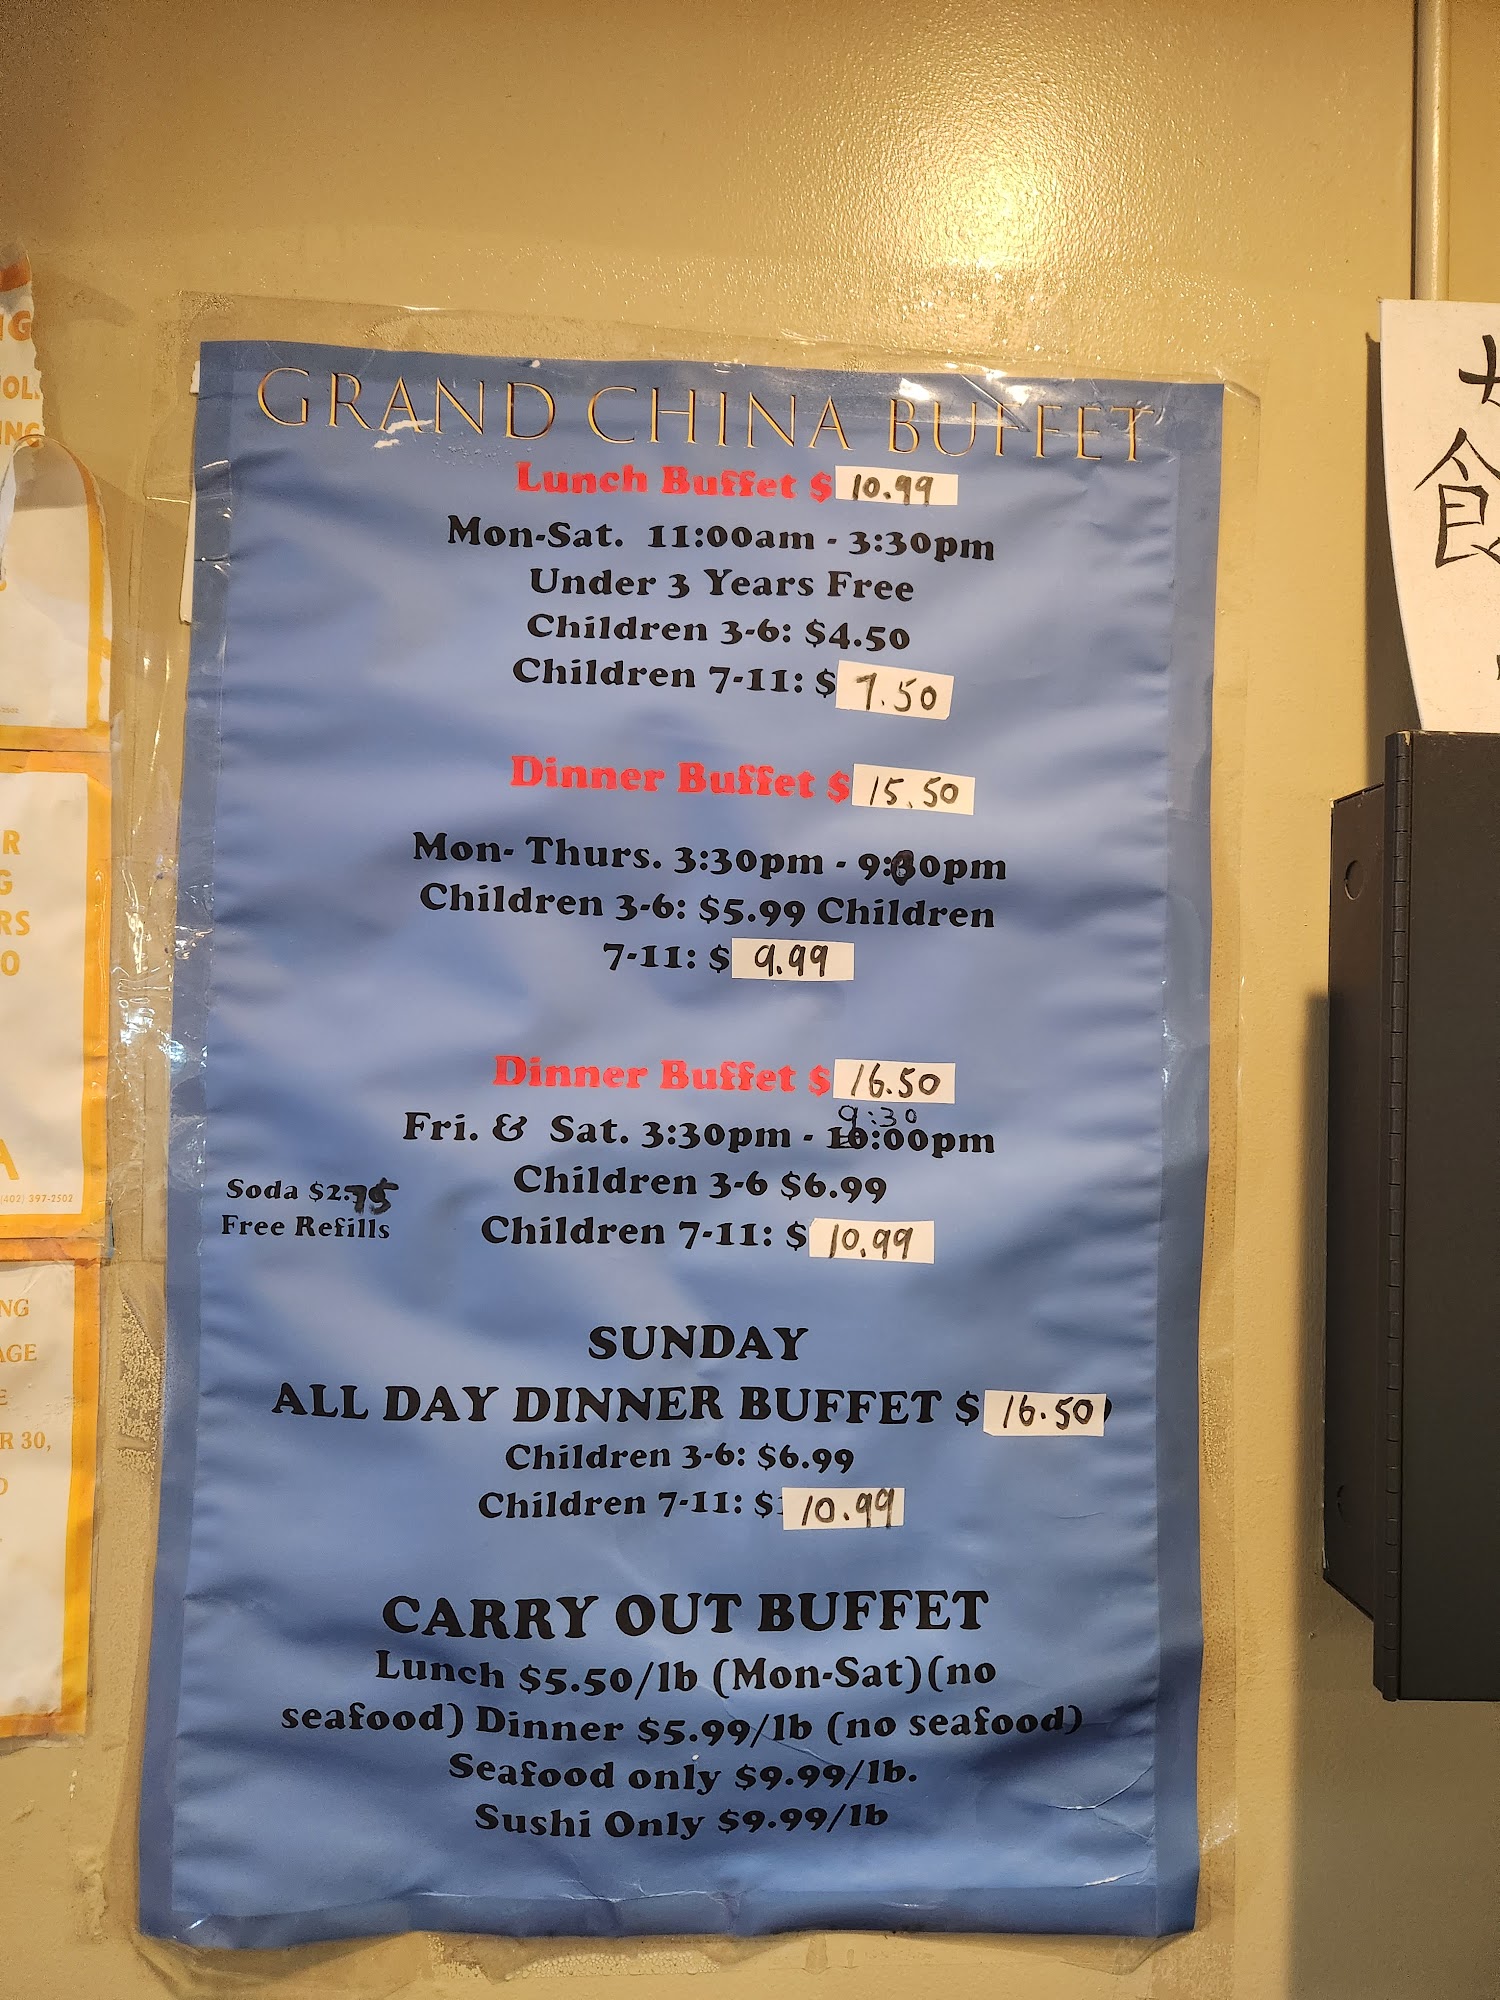 GRAND CHINA BUFFET
Lunch Buffet $ 10.99
Mon-Sat. 11:00am - 3:30pm
Under 3 Years Free
Children 3-6: $4.50
Children 7-11: $ 7.50
Dinner Buffet $ 15.50
Mon- Thurs. 3:30pm - 9:00pm
Children 3-6: $5.99 Children
7-11: $ 9.99
Dinner Buffet $ 16.50
9:30
Fri. & Sat. 3:30pm - 10:00pm
Children 3-6 $6.99
Children 7-11: $ 10.99
Soda $2.75
Free Refills
SUNDAY
ALL DAY DINNER BUFFET $ 16.50
Children 3-6: $6.99
Children 7-11: $ 10.99
CARRY OUT BUFFET
Lunch $5.50/lb (Mon-Sat)(no
seafood) Dinner $5.99/lb (no seafood)
Seafood only $9.99/lb.
Sushi Only $9.99/lb
(402) 397-2502
R 30,